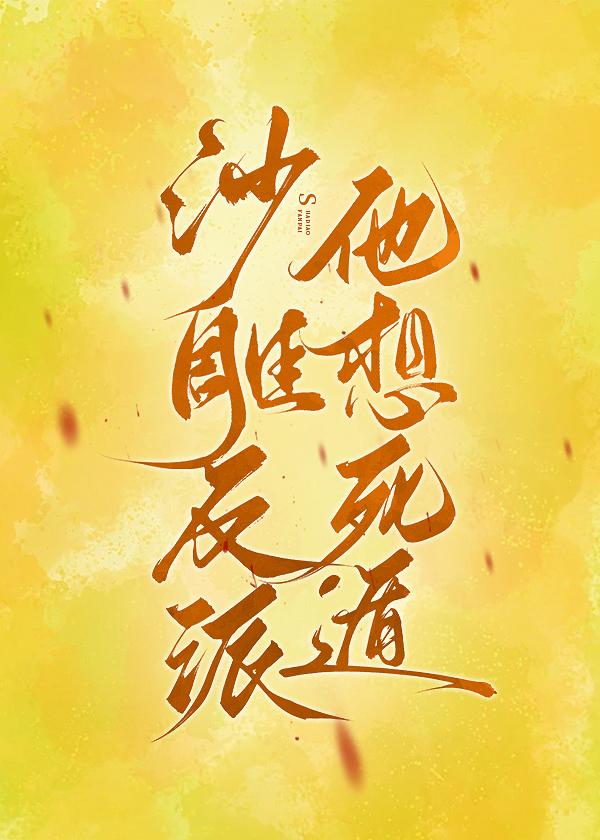 沙雕反派
SHADIAO
FANPAI
他想死遁